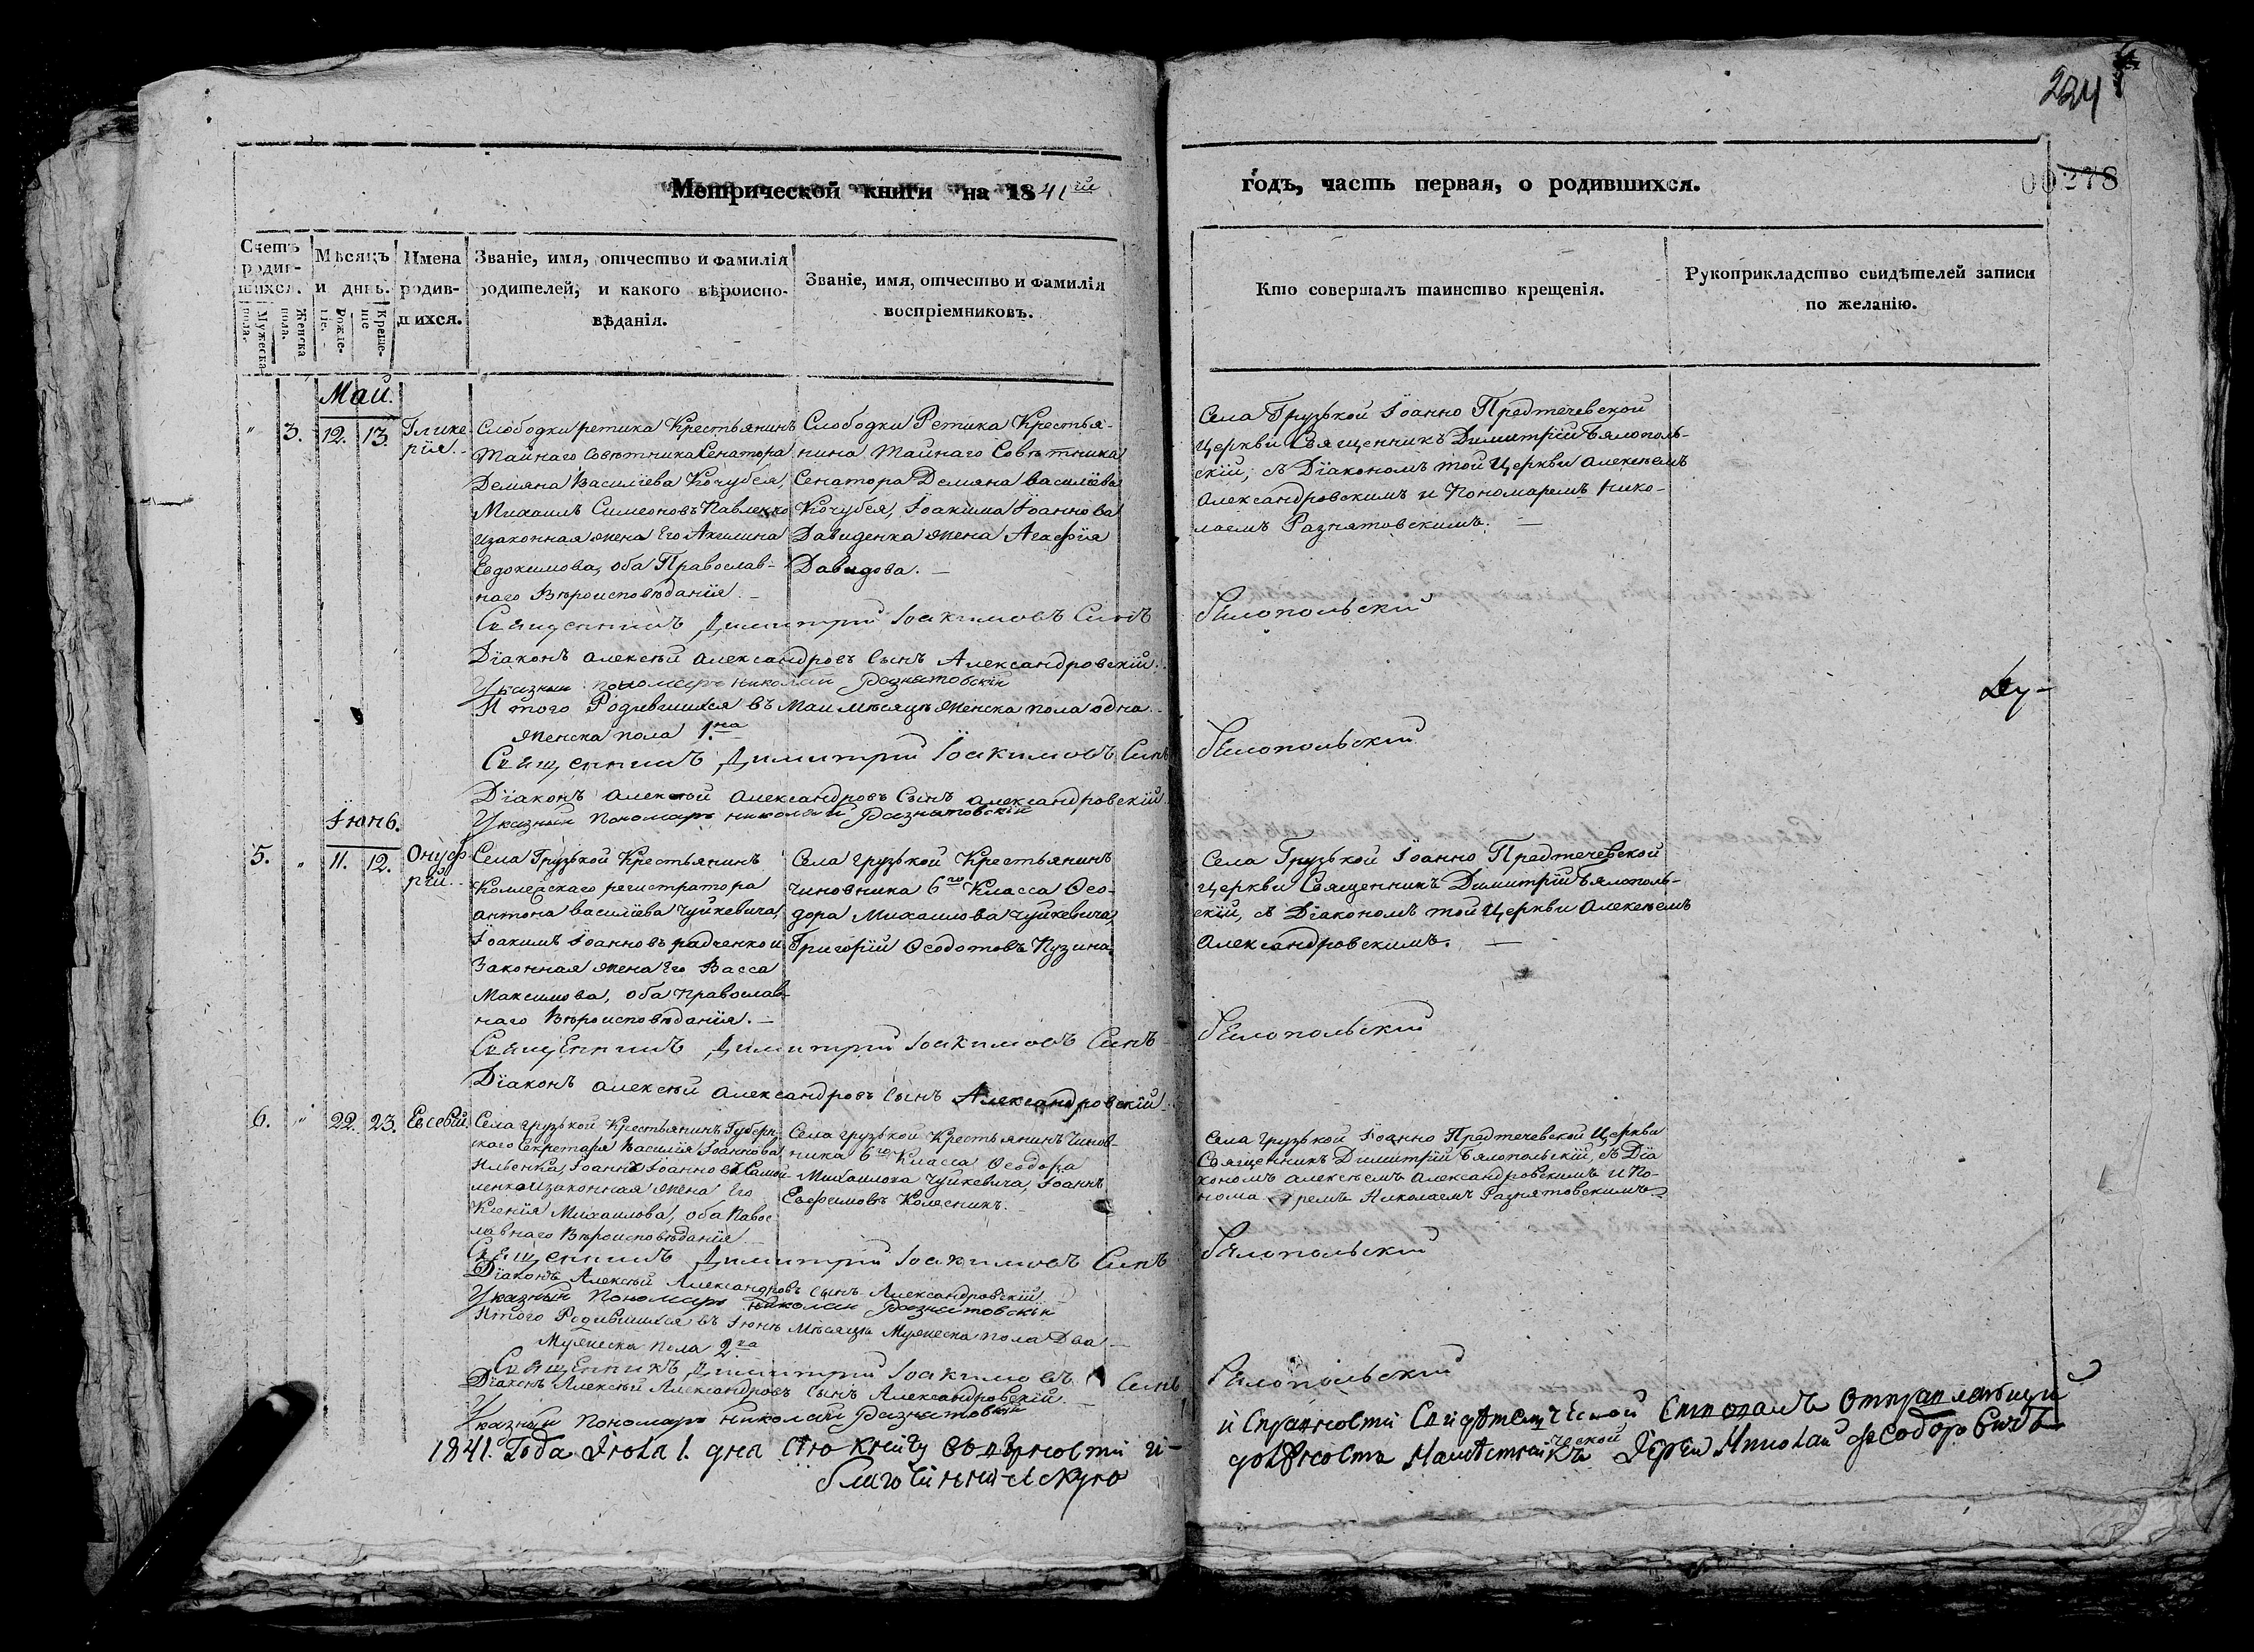 224
Метрической книги на 1841й
годъ, часть первая, о родившихся.
00278
Счетъ родив-шихся.
Мужеска пола.
Женска пола.
Мѣсяцъ и день.
Рожде-ніе.
Креще-ніе
Имена родив-шихся.
Званіе, имя, отчество и фамилія
родителей, и какого вѣроиспо-
вѣданія.
Званіе, имя, отчество и фамилія
воспріемниковъ.
Кто совершалъ таинство крещенія.
Рукоприкладство свидѣтелей записи
по желанію.
Май.
" 3. 12. 13.
Глике
рія.
Слободки Ретика Крестьянинъ
Тайнаго Совѣтника Сенатора
Демяна Василіева Кочубея,
Михаилъ Симеоновъ Павленко
и законная жена Его Акилина
Евдокимова, оба Православ-
наго Вѣроисповѣданія. —
Слободки Ретика Крестья-
нина Тайнаго Совѣтника
Сенатора Демяна Василіева
Кочубея, Іоакима Іоаннова
Давиденка жена Агафія
Давидова. —
Села Грузькой Іоанно Предтечевской
Церкви Священникъ Димитрій Бялополь-
скій, съ Діакономъ той Церкви Алексѣемъ
Александровскимъ и Пономаремъ Нико-
лаемъ Разнятовскимъ. —
Священникъ Димитрій Іоакимовъ Синъ Бялопольский
Діаконъ Алексѣй Александровъ Сынъ Александровскій.
Указный пономарь Николай Рознатовскій
Итого Родившихся въ Маи Мѣсяцѣ женска пола одна.
женска пола 1.на
Священникъ Димитрій Іоакимовъ Синъ Бялопольский
Діаконъ Алексѣй Александровъ Сынъ Александровскій.
Указный Пономарь Николай Рознатовскій
Іюнь.
5. " 11. 12.
Онуф
рій.
Села Грузькой Крестьянинъ
Коллежскаго регистратора
Антона Василіева Чуйкевича,
Іоакимъ Іоанновъ Радченко и
Законная жена Его Васса
Максимова, оба Православ-
наго Вѣроисповѣданія. —
Села Грузькой Крестьянинъ
Чиновника 6го Класса Ѳео-
дора Михаилова Чуйкевича,
Григорій Ѳеодотовъ Пузина.
Села Грузькой Іоанно Предтечевской
Церкви Священникъ Димитрій Бялополь-
скій, съ Діакономъ той Церкви Алексѣемъ
Александровскимъ. —
Священникъ Димитрій Іоакимовъ Синъ Бялопольский
Діаконъ Алексѣй Александровъ Сынъ Александровскій
6. " 22. 23. Евсевій
Села Грузькой Крестьянинъ Губерн-
скаго Секретаря Василія Іоаннова
Ильенка, Іоаннъ Іоанновъ Самой-
ленко и законная жена Его
Ксенія Михаилова, оба Павос
лавнаго Вѣроисповѣданія. —
Села Грузькой Крестьянинъ Чинов-
ника 6го Класса Ѳеодора
Михаилова Чуйкевича, Іоаннъ
Евфимовъ Колесникъ.
Села Грузькой Іоанно Предтечевской Церкви
Священникъ Димитрій Бялопольскій, съ Діа
кономъ Алексѣемъ Александровскимъ и По-
номаремъ Николаемъ Разнятовскимъ.
Священникъ Димитрій Іоакимовъ Синъ Бялопольский
Діаконъ Алексѣй Александровъ Сынъ Александровскій.
Указный Пономарь Николай Рознатовскій
Итого Родившихся въ Іюнѣ Мѣсяцѣ Мужеска пола Два —
Мужеска пола 2.ва
Священникъ Димитрій Іоакимовъ Синъ Бялопольский
Діаконъ Алексѣй Александровъ Сынъ Александровскій.
Указный Пономарь Николай Рознатовский
1841. Года Іюля 1. дня Сію книгу въ вѣрности и исправности
благочинническую должность Іерей Николай Ѳеодоровичъ